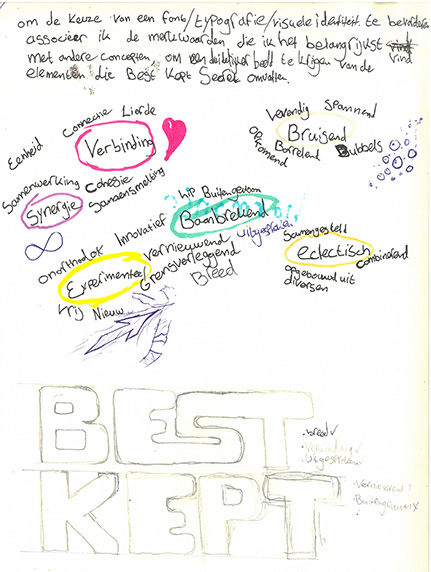 om de keuze van een font/typografie/visuele identiteit te bevorderen
associeer ik de merkwaarden die ik het belangrijkst vind
met andere concepten, om een duidelijker beeld te krijgen van de
elementen die Best Kept Secret omvatten.
Connectie Liefde
Eenheid
Verbinding
Samenwerking Cohesie
Samensmelting
Synergie
levendig spannend
Bruisend
opkomend
Borrelend Bubbels
hip Buitengewoon
Baanbrekend
Uitgesproken
Onorthodox Innovatief
Vernieuwend
Experimenteel
Grensverleggend
Breed
Vrij Nieuw
Samengesteld
eclectisch
Combinerend
opgebouwd uit
diversen
BEST
KEPT
. breed ✓
. Verbinding ✓
. Uitgesproken ✓
. Vernieuwend ?
. Buitengewoon X